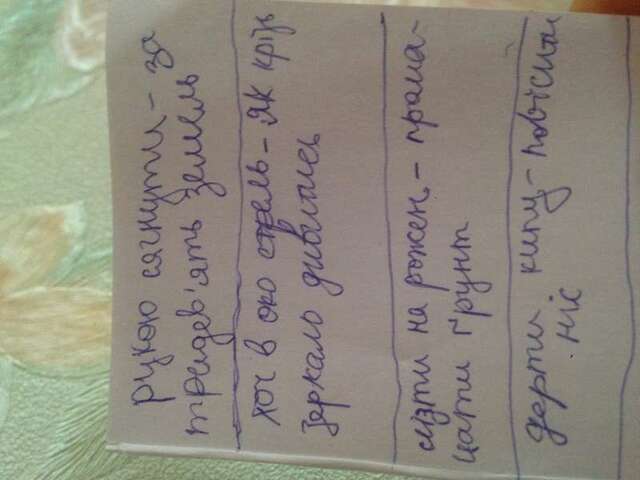 рукою сягнути – за
тридев'ять земель
хоч в око стрель – як крізь
зеркало дивитись
лізти на рожен – прома-
цати ґрунт
дерти кипу – повісити
ніс